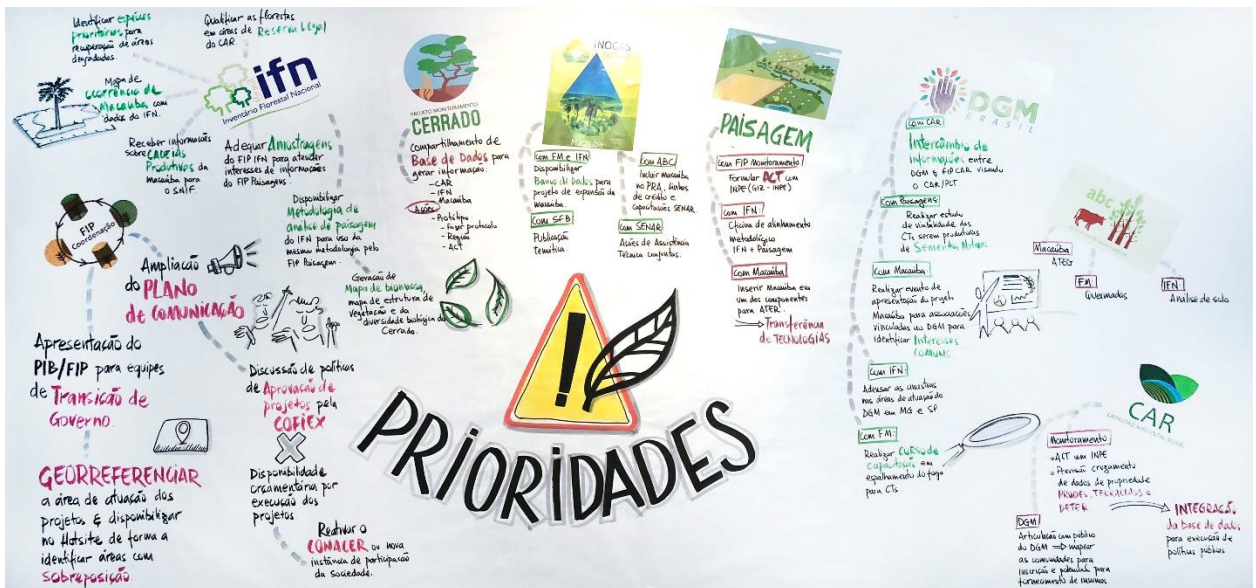 Identificar espécies
prioritárias para
recuperação de áreas
degradadas.
Qualificar as florestas
em áreas de Reserva Legal
do CAR.
Mapa de
ocorrência de
Macaúba com
dados do IFN.
ifn
Inventário Florestal Nacional
Receber informações
sobre CADEIAS
Produtivas da
macaúba para
o SNIF.
Adequar Amostragens
do FIP IFN para atender
interesses de informações
do FIP Paisagens.
Disponibilizar
Metodologia de
análise de paisagem
do IFN para uso da
mesma metodologia pelo
FIP Paisagem.
Geração de
Mapa de biomassa,
mapa de estrutura de
vegetação e da
diversidade biológica do
Cerrado.
FIP
Coordenação
Ampliação
do PLANO
de COMUNICAÇÃO
Apresentação do
PIB/FIP para equipes
de Transição de
Governo.
GEORREFERENCIAR
a área de atuação dos
projetos & disponibilizar
no Hotsite de forma a
identificar áreas com
sobreposição
Discussão de políticas
de Aprovação de
projetos pela
COFIEX
Disponibilidade
orçamentária por
execução dos
projetos
Reativar o
CONACER ou nova
instância de participação
da Sociedade.
PROJETO MONITORAMENTO
CERRADO
Compartilhamento de
Base de Dados para
gerar informação:
- CAR
- IFN
- Macaúba
Ações
- Protótipo
- Fazer protocolo
- Região
- ACT
INOCAS
MACAÚBA
Com FM e IFN
Disponibilizar
Banco de Dados para
projeto de expansão da
macaúba.
Com SFB
Publicação
temática.
Com ABC
Incluir macaúba
no PRA, linhas
de crédito e
Capacitações SENAR.
Com SENAR
Ações de Assistência
Técnica conjuntas.
PAISAGEM
Com FIP Monitoramento
Formular ACT com
INPE (GIZ - INPE)
Com IFN
Oficina de alinhamento
metodológico
IFN + Paisagem
Com Macaúba
Inserir Macaúba em
um dos componentes
para ATER.
Transferência
de TECNOLOGIAS
PRIORIDADES
DGM
BRASIL
Com CAR
Intercâmbio de
informações entre
DGM & FIP CAR visando
o CAR/PCT.
Com Paisagens:
Realizar estudo
de viabilidade das
CTs serem produtoras
de Sementes Nativas
Com Macaúba:
Realizar evento de
apresentação do projeto
Macaúba para associações
vinculadas ao DGM para
identificar Interesses
COMUNS.
Com IFN:
Adensar as amostras
nas áreas de atuação do
DGM em MG e SP
Com FM:
Realizar CURSO de
Capacitação em
espalhamento do fogo
para CTs
abc
Macaúba
ATEG
FM
Queimadas
IFN
Análise de solo
CAR
CADASTRO AMBIENTAL RURAL
Monitoramento
ACT um INPE
Previsão cruzamento
de dados de propriedade
PRODES, TERRACLASS e
DETER
INTEGRAÇÃO
da base de dados
para execução de
políticas públicas
DGM
Articulação com público
do DGM → mapear
as comunidades para
inscrição e potencial para
fornecimento de insumos